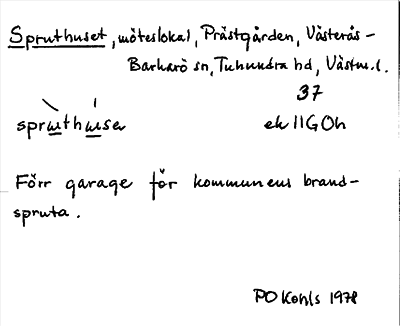 Spruthuset, möteslokal, Prästgården, Västerås-
Barkarö sn, Tuhundra hd, Västm.l.
37
spruthuser ek 11G0h
Förr garage för kommunens brand-
spruta.
PO Kohls 1978